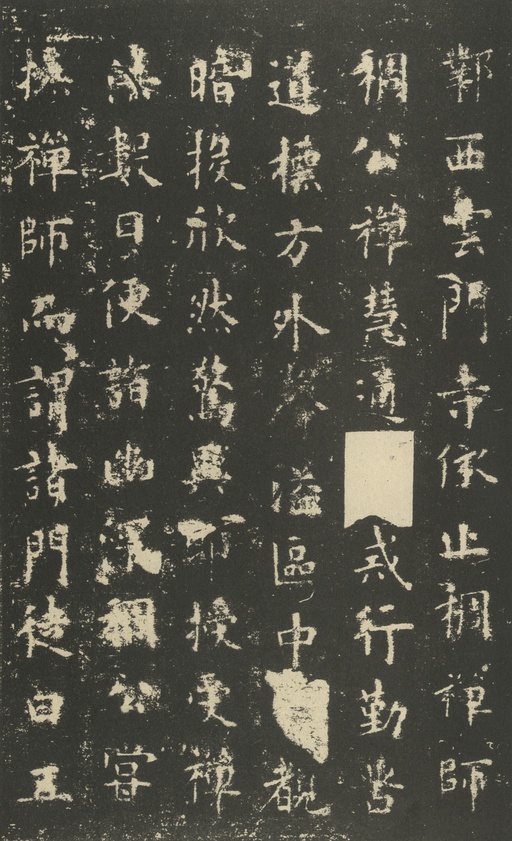 鄴西雲門寺依止稠禪師
稠公禪慧通戒行勤苦
道標方外聲溢區中覩
暗投欣然驚異即授受禪
法數日便詣幽深稠公嘗
撫禪師而謂諸門徒曰五